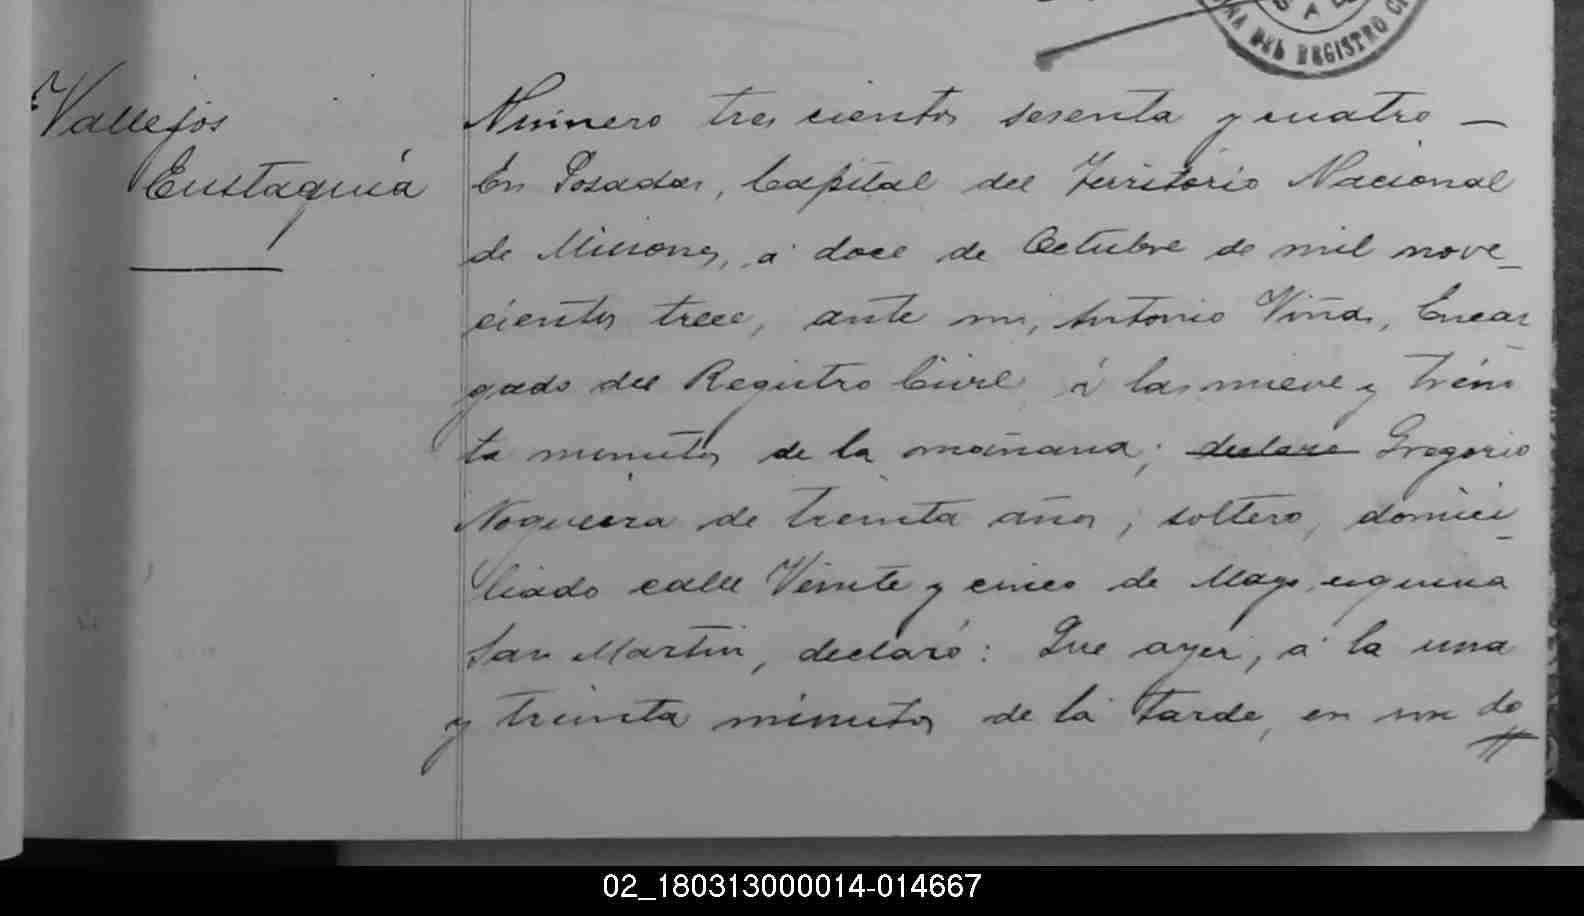 DEL REGISTRO CI
Vallejos
Eustaquia
Número tres cientos sesenta y cuatro —
En Posadas, Capital del Territorio Nacional
de Misiones, á doce de Octubre de mil nove_
cientos trece, ante mi, Antonio Viñas, Encar
gado del Registro Civil á las nueve y trein
ta minutos de la mañana; declaro Gregorio
Nogueira de treinta años, soltero, domici_
liado calle Veinte y cinco de Mayo esquina
San Martin, declaró: Que ayer, á la una
y treinta minutos de la tarde, en su do
02_180313000014-014667